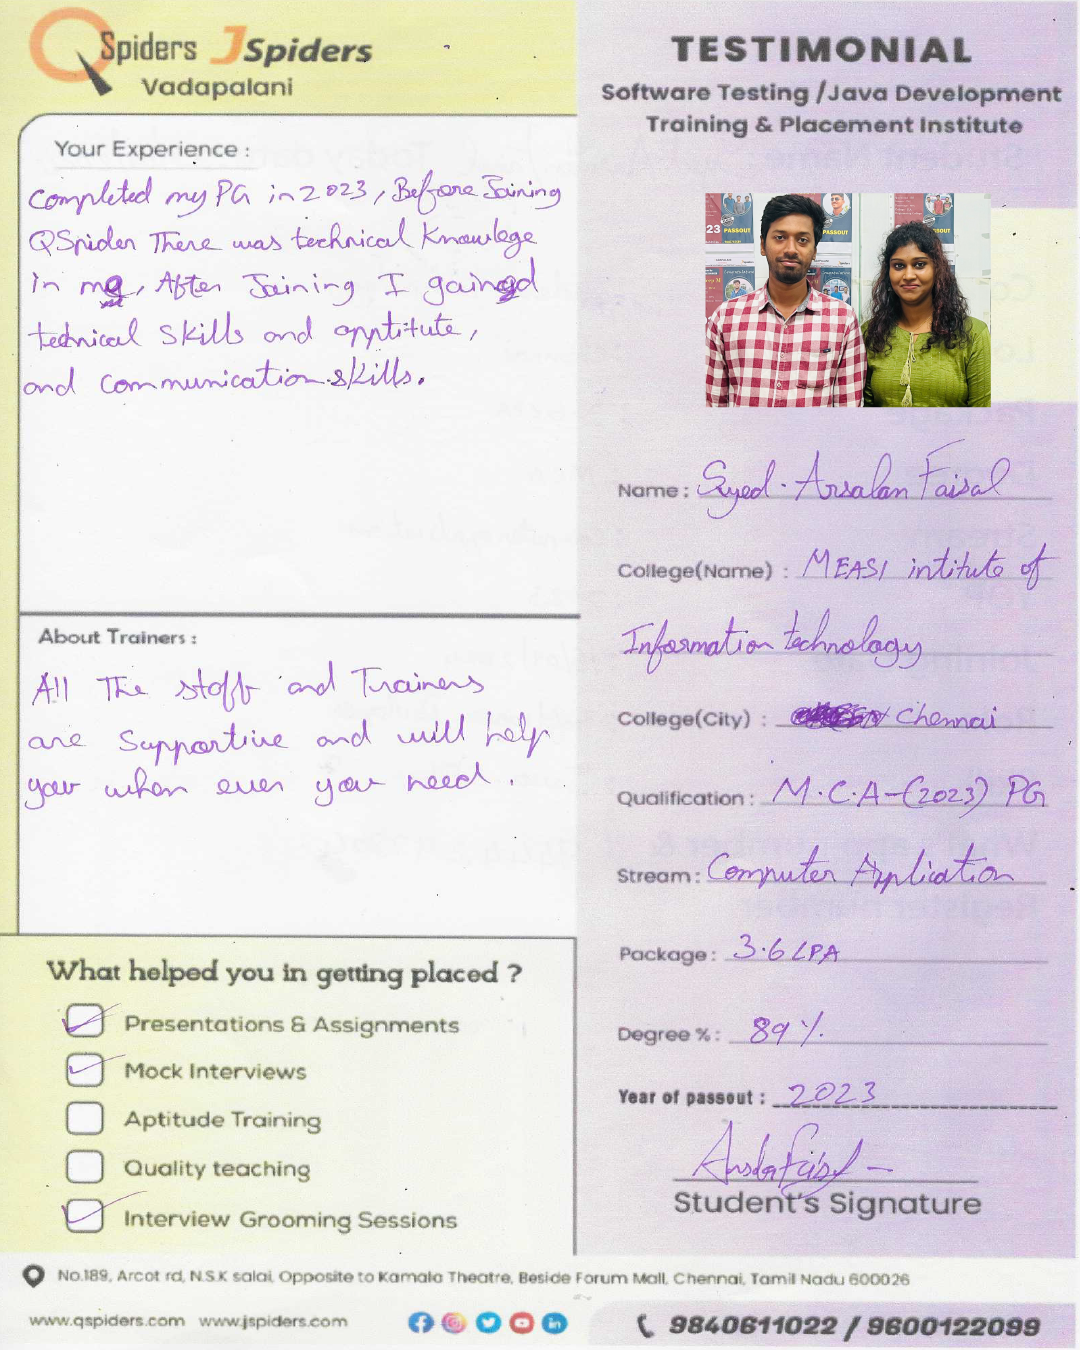 QSpiders JSpiders
Vadapalani
Your Experience :
Completed my PG in 2023, Before Joining
QSpider There was technical Knowlege
in me, After Joining I gained
technical skills and apptitute,
and communication skills.
About Trainers :
All The staff and Trainers
are Supportive and will help
you when ever you need.
What helped you in getting placed ?
Presentations & Assignments
Mock Interviews
Aptitude Training
Quality teaching
Interview Grooming Sessions
TESTIMONIAL
Software Testing /Java Development
Training & Placement Institute
23 PASSOUT
PASSOUT
PASSOUT
Name : Syed. Arsalan Faisal
College(Name) : MEASI intitute of
Information technology
College(City) : Chennai
Qualification : M.C.A-(2023) PG
Stream : Computer Application
Package : 3.6 LPA
Degree % : 89 %.
Year of passout : 2023
Student's Signature
No.189, Arcot rd, N.S.K salai, Opposite to Kamala Theatre, Beside Forum Mall, Chennai, Tamil Nadu 600026
www.qspiders.com www.jspiders.com
9840611022 / 9600122099